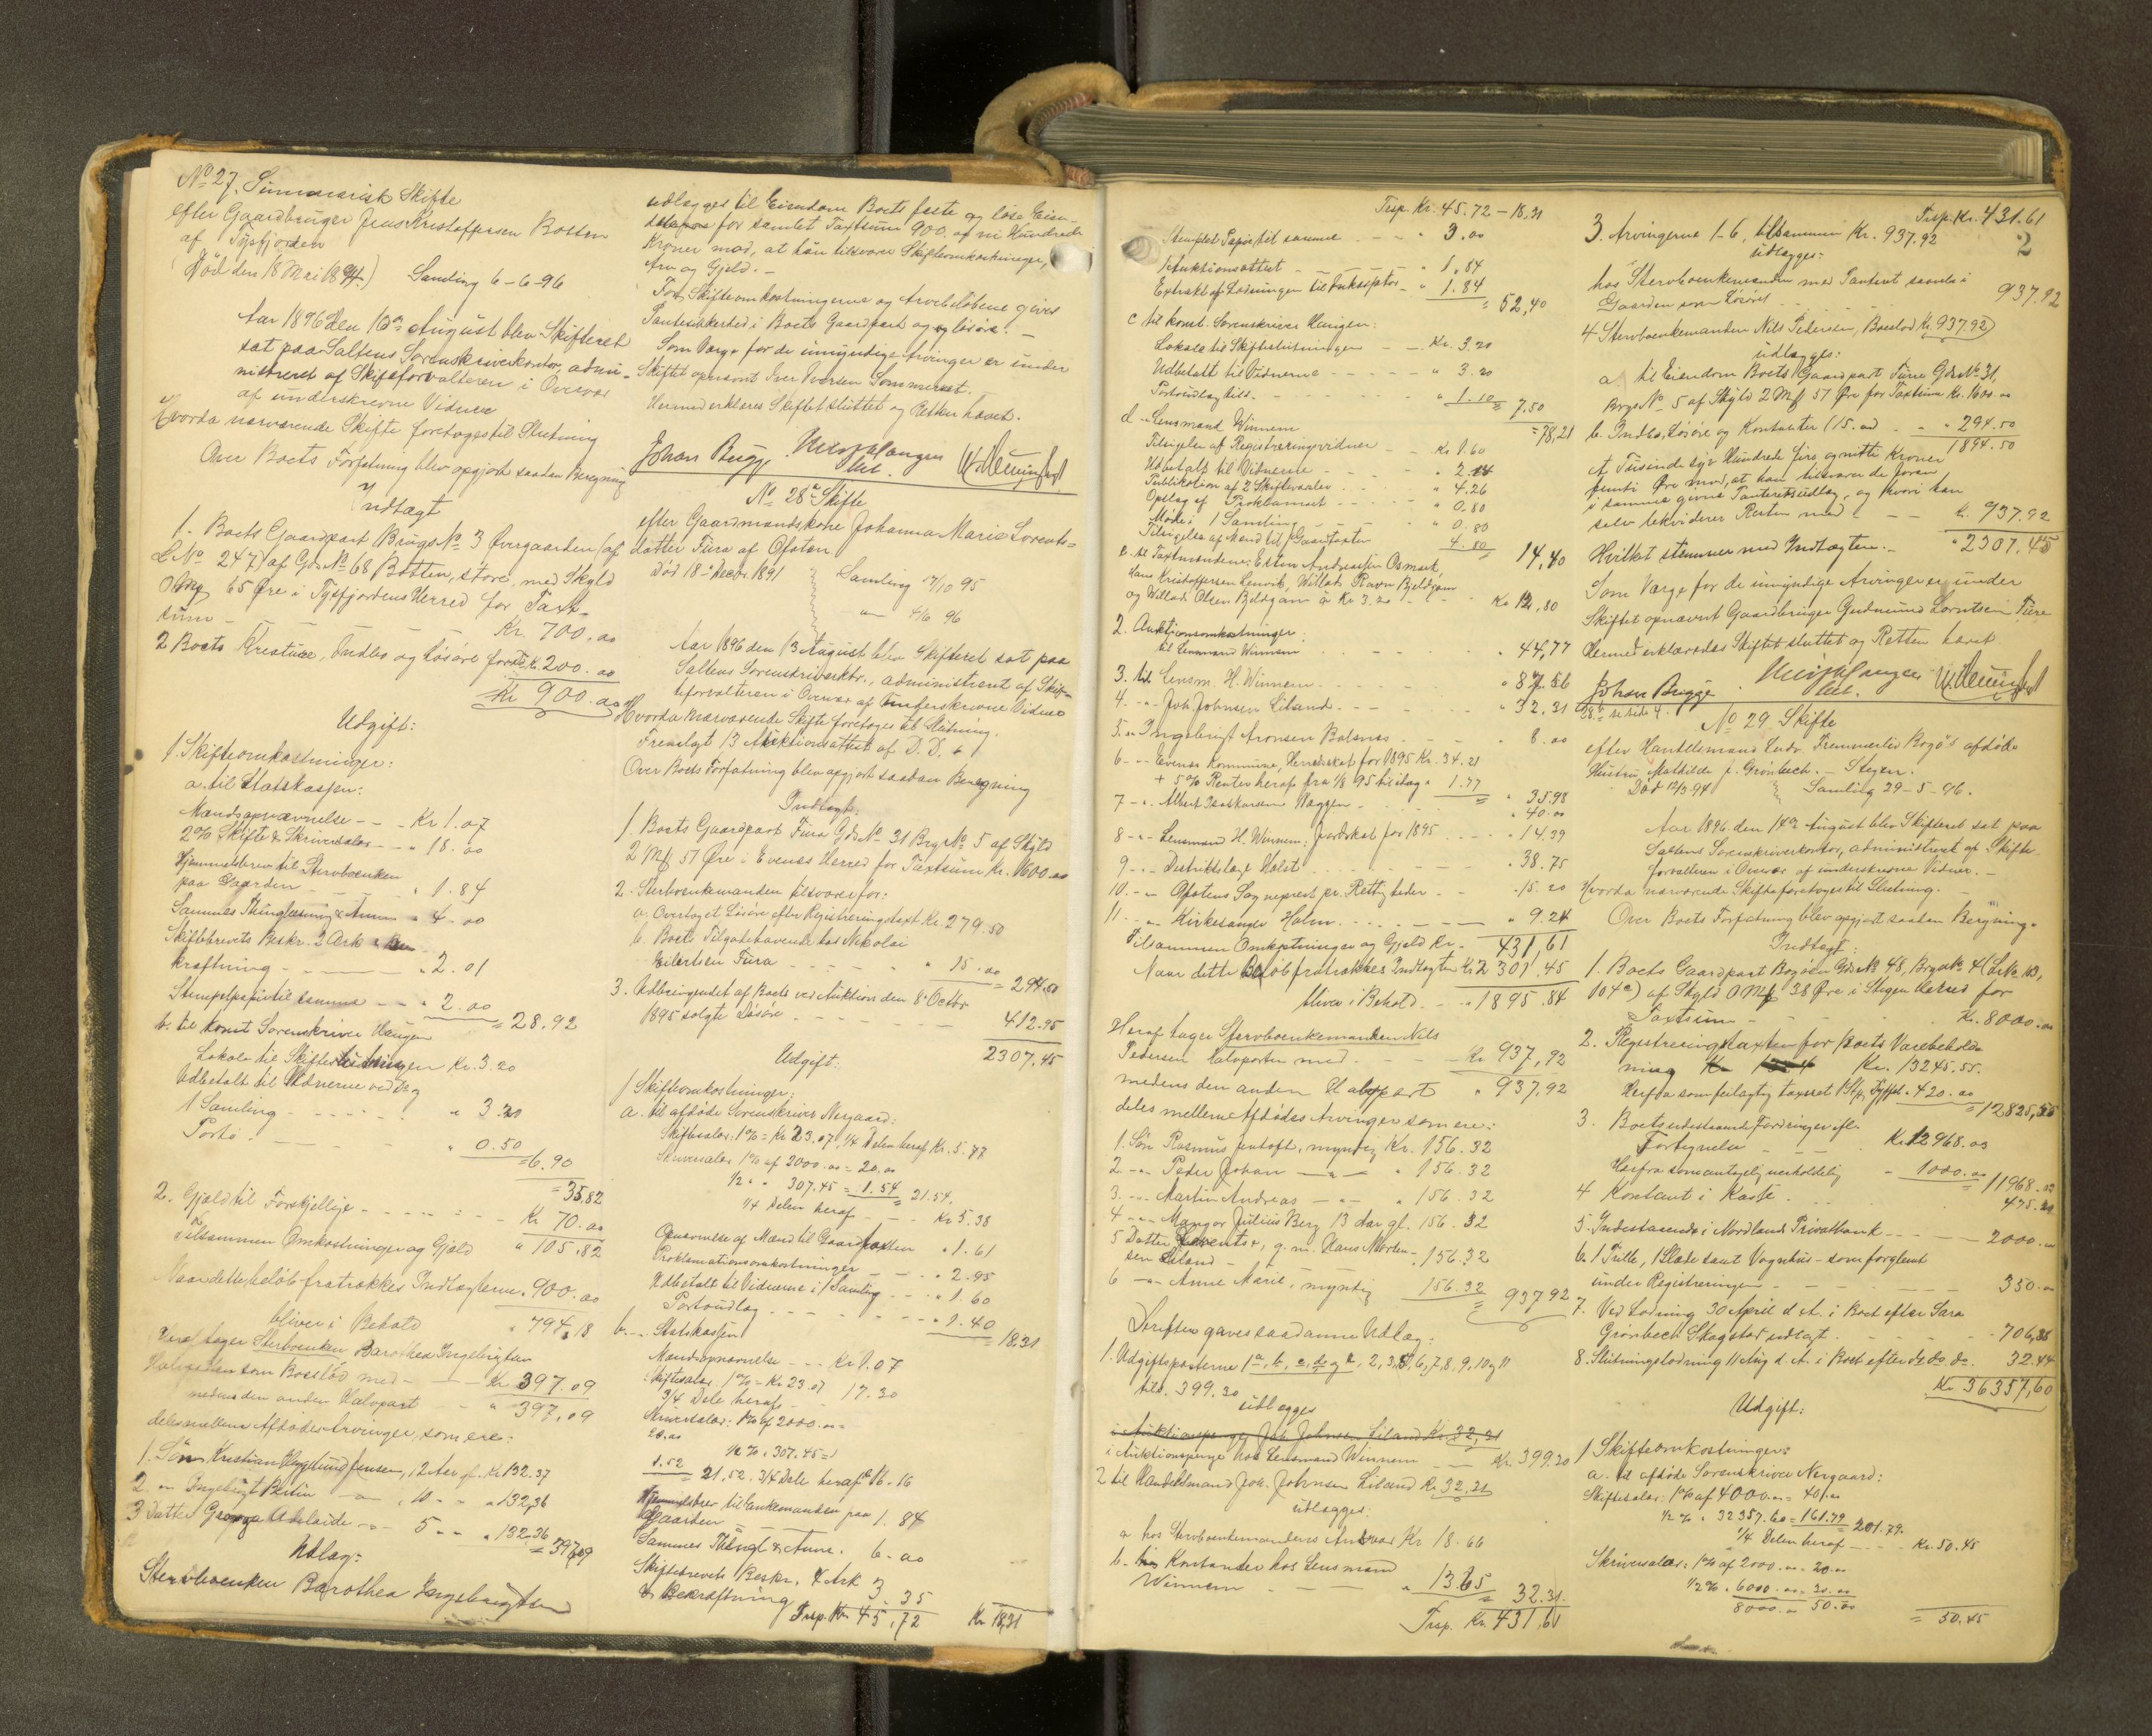 No 27. Summarisk Skifte
efter Gaardbruger Jens Kristoffersen Botten
af Tysfjorden
(Död den 18 Mai 1894.) Samling 6-6-96
Aar 1896 den 10de August blev Skifteret
sat paa Saltens Sorenskriverkontor, admi-
nistreret af Skifteforvalteren i Overvær
af underskrevne Vidner
Hvorda nærværende Skifte foretoges til Slutning
Over Boets Forfatning blev opgjort saadan Beregning
Indtægt
1. Boets Gaardpart Brugs No 3 Øvergaarden (af
L No 247) af Gds No 68 Botten, store, med Skyld
0 Mk 65 Øre i Tysfjordens Herred for Taxt-
sum - Kr. 700.00
2 Boets Kreature, Indbo og Løsøre for Kr. 200.00
Kr 900.00
Udgift:
1. Skifteomkostninger:
a. til Statskassen:
Mændsopnævnelse - - - Kr 1.07
2% Skifte & Skriversalær - - " 18.00
Hjemmelsbrev til Stervboenken
paa Gaarden - " 1.84
Sammes Thinglæsning & Annon " 4.00
Skiftebrevets Beskr. 2 Ark &
kræftning - " 2.01
Stempelpapir til samme - - " 2.00
= 28.92
b. til konst Sorenskriver Haugen
Lokale til Skifteslutningen Kr. 3.20
Udbetalt til Vidnerne ved Do og
1 Samling - " 3.20
Porto - " 0.50
= 6.90
= 35.82
2. Gjæld til Forskjellige - Kr 70.00
Tilsammen Omkostninger og Gjæld " 105.82
Naar dette beløb fratrækkes Indtægterne " 900.00
bliver i Behold " 794.18
Heraf tager Sterboenken Barothea Ingebrigtsen
Halvdelen som Boeslod med - Kr 397.09
medens den anden Halvpart - " 397.09
deles mellem Afdødes Arvinger, som ere:
1. Søn Kristian Hagelund Jensen, 12 Aar gl. Kr 132.37
2 " Ingebrigt Martin - " - 10 - " - " 132,36
3 Datter Georga Adelaide - " - 5 - " - " 132.36
= 397.09
Udlæg:
Stervboenken Barothea Ingebrigtsen
udlægges til Eiendom Boets faste og løse Eien-
dele for samlet Taxtsum 900.00 ni Hundrede
Kroner mod, at hun tilsvarer Skifteomkostninger,
Arv og Gjeld. -
For Skifteomkostningerne og Arvebeløbene gives
Pantesikkerhed i Boets Gaardpart og løsøre. -
Som Værge for de umyndige Arvinger er under
Skiftet opnævnt Iver Iversen Sommerset.
Hermed erklæres Skiftet sluttet og Retten hævet.
Johan Brügge
No 28. Skifte
efter Gaardmandskone Johanna Marie Lorents-
datter Fura af Ofoten
Død 18de Decbr. 1891 Samling 17/10 95
- " - 4/6 96
Aar 1896 den 13 August blev Skifteret sat paa
Saltens Sorenskriverktr., administreret af Skif-
teforvalteren i Overvær af underskrevne Vidner
Hvorda nærværende Skifte foretoges til Slutning.
Fremlagt 13 Auktionsattest af D. D. & 1
Over Boets Forfatning blev opgjort saadan Beregning
Indtægt:
1. Boets Gaardpart Fura Gds No 31 Brgs No 5 af Skyld
2 Mk 57 Øre i Evenes Herred for Taxtsum Kr. 1600.00
2. Sterboenkemanden tilsvarer for:
a. Overtaget Løsøre efter Registreringstaxt Kr. 279.50
b. Boets Tilgodehavende hos Nikolai
Eilertsen Fura - " 15.00
= 294.50
3. Udbringendet af Boets ved Auktion den 8de Octbr
1895 solgte Løsøre - 412.95
2307.45
Udgift:
1 Skifteomkostninger:
a. til afdøde Sorenskriver Nergaard:
Skiftesalær: 1% = Kr 23.07, 1/4 Delen heraf Kr. 5.77
Skriversalær 1% af 2000.00 = 20.00
1/2 " " 307.45 = 1.54 = 21.54.
1/4 Delen heraf - Kr 5.38
Opnævnelse af Mænd til Gaardtaxten " 1.61
Proklamationsomkostninger - " 2.95
Udbetalt til Vidnerne i 1 Samling - " 1.60
Portoudlæg - " 1.40
= 18.31
b. - Statskassen
Mændsopnævnelse - - Kr 1.07
Skiftesalær 1% = Kr 23.07
3/4 Dele heraf - 17.30
Skriversalær: 1% af 2000.00 =
20.00
1/2 % " 307.45 =
1.52 = 21.52. 3/4 Dele heraf " 16.16
Hjemmelsbrev til Enkemanden paa
Gaarden - 1.84
Sammes Thingl & Annc. 6.00
Skiftebrevets Beskr. 4 Ark
& Bekræftning 3.35
Trsp. Kr 45.72 Kr 18,31
Trsp. Kr. 45.72 - 18,31
Stemplet Papir til samme - - - " 3.00
1 Auktionsattest - " 1.84
Extrakt af Lodningen til Inkassator - " 1.84
= 52,40
c til konst. Sorenskriver Haugen:
Lokale til Skifteslutningen - - Kr. 3.20
Udbetalt til Vidnerne - " 3.20
Portoudlæg tils. - " 1.10
= 7.50
= 78,21
d - Lensmand Winnem
Tilsigelse af Registreringsvidner - Kr 1.60
Udbetalt til Vidnerne - " 2.14
Publikation af 2 Skiftesamler - " 4.26
Opslag af Proklamaet - " 0.80
Møde i 1 Samling - " 0.80
Tilsigelse af Mænd til Gaardtaxten 4.80
14,40
e. til Taxtmændene: Esten Andreassen Osmark,
Hans Kristoffersen Lenvik, Willads Ravn Bjeldgam
og Willads Olsen Bjeldgam à Kr 3.20 - Kr 12,80
2. Auktionsomkostninger:
til Lensmand Winnem - " 44,77
3. til Lensm. H. Winnem - " 87.56
4. - " - Joh. Johnsen Liland - " 32.31
5. " Ingebrigt Aronsen Balsnes - " 8.00
6 - " - Evenes Kommune, Herredsskat for 1895 Kr. 34.21
+ 5% Renter heraf fra 1/8 95 til idag " 1.77
= " 35.98
7 - " - Albert Isakskarsen - " 40.00
8 - " - Lensmand H. Winnem: Jordskat for 1895 - " 14,39
9 - " - Distriktslæge Holst - " 38.75
10. - " - Ofotens Sogneprest pr. Rettigheder - - 15.20
11. - " - Kirkesanger Holm - " 9.24
Tilsammen Omkostninger og Gjæld Kr. 431,61
Naar dette Beløb fratrækkes Indtægten Kr 2307.45
bliver i Behold - " 1895.84
Heraf tager Stervboenkemanden Nils
Pedersen Halvparten med - Kr 937,92
medens den anden Halvpart " 937,92
deles mellem Afdødes Arvinger som ere:
1. Søn Rasmus Jentoft, myndig Kr. 156.32
2 - " - Peder Johan - " - " 156.32
3. - " - Martin Andreas - " - " 156.32
4 - " - Mangor Julius Berg 13 Aar gl. 156.32
5 Datter Lorentse, g. m. Hans Morten-
sen Liland - " 156.32
6 - " - Anne Marie, myndig 156.32
= 937.92
Derefter gaves saadanne Udlæg:
1. Udgiftsposterne 1 a, b, c, d og e, 2, 3, 5, 6, 7, 8, 9, 10 og 11
tils. 399.30
udlægges
i Auktionspenge Joh Johnsen Liland Kr. 32,31
i Auktionspenge hos Lensmand Winnem - Kr. 399.30
2 til Handelsmand Joh. Johnsen Liland Kr. 32.31
udlægges:
a hos Stervboenkemandens Ansvar Kr 18.66
b. Kontanter hos Lensmand
Winnem - " 13.65
= 32.31.
Trsp. Kr. 431,61
Trsp. Kr. 431.61
2
3. Arvingerne 1-6, tilsammen Kr. 937.92
udlægges:
hos Stervboenkemanden med Panteret saavel i
Gaarden som Løsøret - 937.92
4 Stervboenkemanden Nils Pedersen, Boeslod Kr. 937.92
udlægges:
a. til Eiendom Boets Gaardpart Fura Gds No 31,
Brgs No 5 af Skyld 2 Mk 57 Øre for Taxtsum Kr. 1600.00
b. Indbo, Løsøre og Kontanter (15.00 - - " 294.50
1894.50
Et Tusinde syv Hundrede fire og nitti Kroner
femti Øre mod, at han tilsvarer de foran
i samme givne Panteretsudlæg, og hvori han
selv likviderer Resten med - - k. 937.92
Hvilket stemmer med Indtægten. - " 2307.45
Som Værge for de umyndige Arvinger er under
Skiftet opnævnt Gaardbruger Gudmund Lorntsen Fure
Hermed erklæredes Skiftet sluttet og Retten hævet
Johan Brügge
28 b se side 4.
No 29 Skifte
efter Handelsmand Andr. Fremmerlis Bogø's afdøde
Hustru Mathilde f. Grønbech. - Stegen.
Død 12/3 94 Samling 29-5-96.
Aar 1896 den 14de August blev Skifteret sat paa
Saltens Sorenskriverkontor, administreret af Skifte-
forvalteren i Overvær af underskrevne Vidner. -
Hvorda nærværende Skifte foretoges til Slutning. -
Over Boets Forfatning blev opgjort saadan Beregning.
Indtægt:
1. Boets Gaardpart Bogøen Gds No 48, Brgs No 4 (L No 10,
104a) af Skyld 0 Mk 38 Øre i Stegen Herred for
Taxtsum - Kr. 8000.00
2. Registreringstaxten for Boets Varebehold-
ning Kr. 13245.55.
Herfra som feilagtig taxeret 420.00
= 12825,55
3. Boets udestaaende Fordringer efter
Fortegnelse - Kr. 12968.00
Herfra som antagelig uerholdelig - 1000.00
= 11968.00
4 Kontant i Kasse - 475.21
5. Indestaaende i Nordlands Privatbank - 2000.00
6. 1 Trille, 1 Slæde samt Vognhus - som forglemt
under Registreringen - 350.00
7. Ved Lodning 30 April d. A. i Boet efter Sara
Grønbech Skagstad udlagt - 706,35
8. Slutningslodning 11 Aug d. A. i Boet efter do do do 32.44
Kr 36357,60
Udgift:
1 Skifteomkostninger:
a. til afdøde Sorenskriver Nergaard:
Skiftesalær: 1% af 4000.00 = 40.00
1/2 % " 32357.60 = 161.79 = 201.79.
1/4 Delen heraf - Kr. 50.45
Skriversalær: 1% af 2000.00 = 20.00
1/2 % " 6000.00 = 30.00
8000.00 50.00
= 50.45